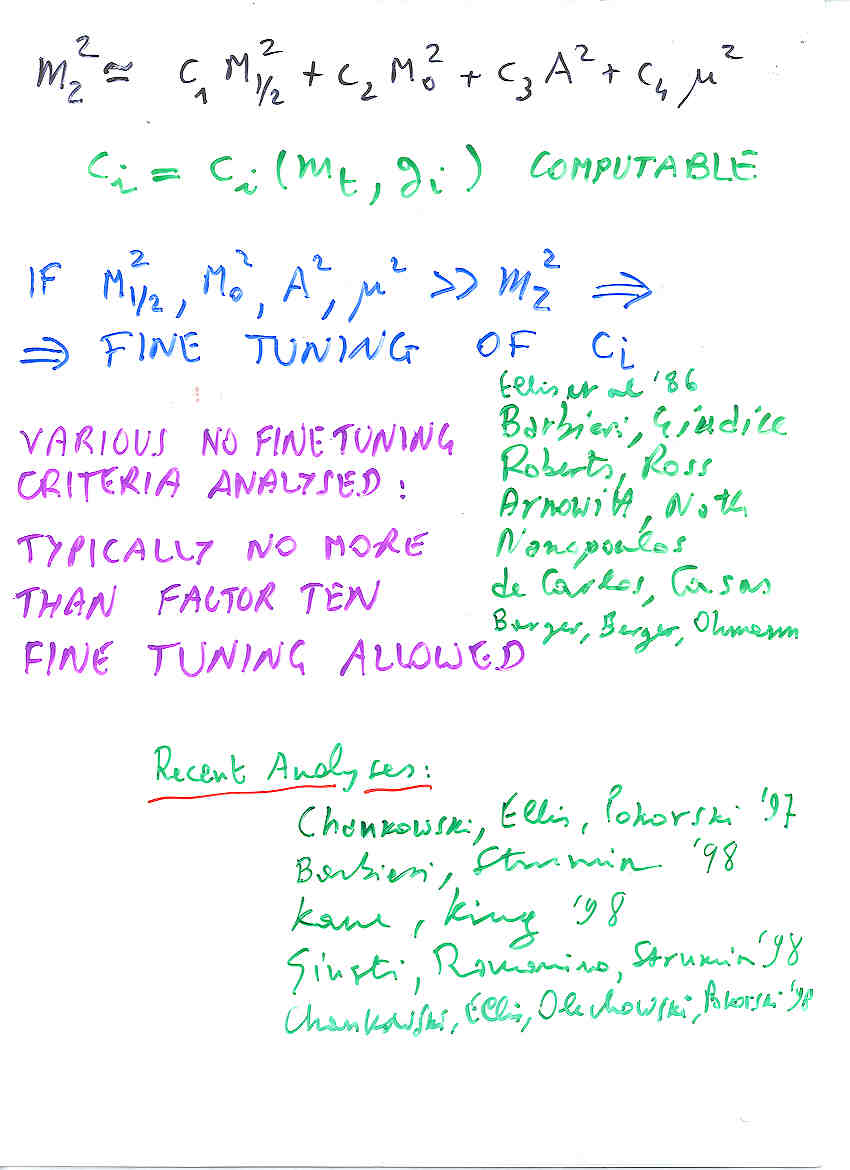 m_Z^2 ≃ C_1 M_{1/2}^2 + C_2 M_0^2 + C_3 A^2 + C_4 μ^2
C_i = C_i (m_t, g_i) COMPUTABLE
IF M_{1/2}^2, M_0^2, A^2, μ^2 >> m_Z^2 ⇒
⇒ FINE TUNING OF C_i
VARIOUS NO FINE TUNING
CRITERIA ANALYSED:
TYPICALLY NO MORE
THAN FACTOR TEN
FINE TUNING ALLOWED
Ellis et al '86
Barbieri, Giudice
Roberts, Ross
Arnowitt, Nath
Nanopoulos
de Carlos, Casas
Barger, Berger, Ohmann
Recent Analyses:
Chankowski, Ellis, Pokorski '97
Barbieri, Strumia '98
Kane, King '98
Giusti, Romanino, Strumia '98
Chankowski, Ellis, Olechowski, Pokorski '98